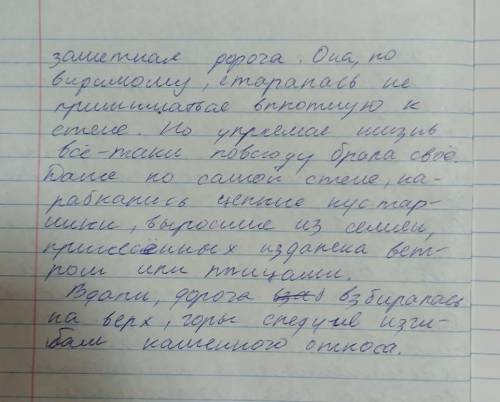 заметная дорога. Она, по
видимому, старалась не
прижиматься вплотную к
стене. Но упрямая жизнь
всё-таки повсюду брала своё.
Даже по самой стене, ка-
рабкались цепкие кустар-
ники, выросшие из семян,
принесённых издалека вет-
ром или птицами.
Вдали, дорога взбиралась
на верх, горы следуя изги-
бам каменного откоса.